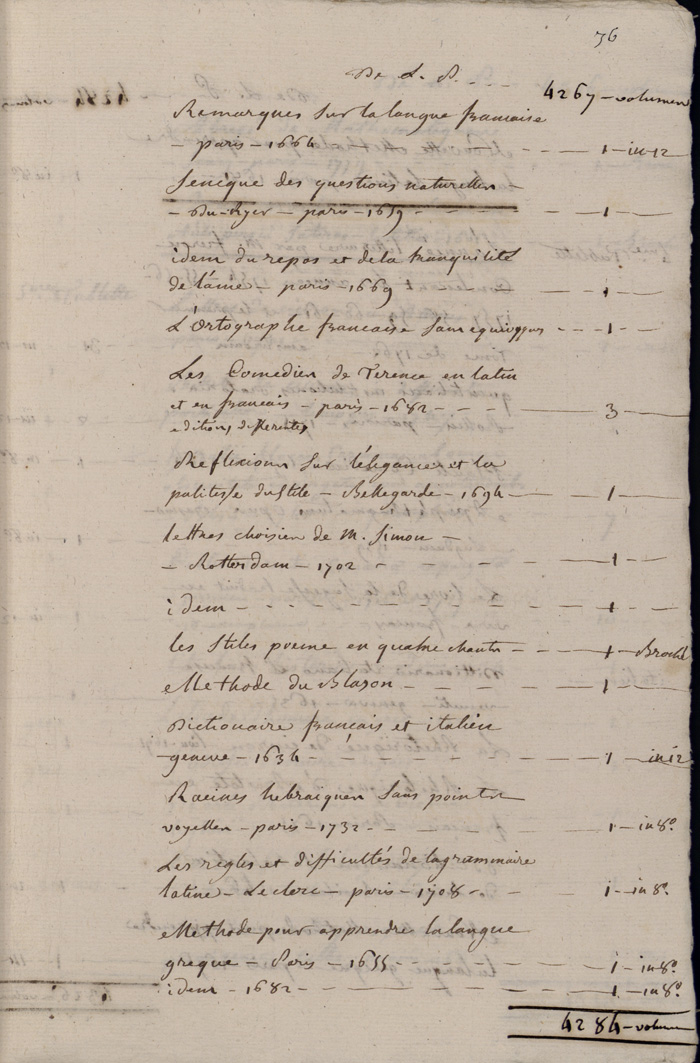 76
De L. P. . . . 4267 – volumes
Remarques Sur la langue francaise
– paris – 1664 – – – 1 – in-12
Seneque des questions naturelles
– Du-Ryer – paris – 1659 – – – 1 –
idem du repos et de la tranquilité
de l'ame – paris – 1669 – – – 1 –
L'Ortographe francaise Sans equivoques – – – 1 –
Les Comedies de Terence en latin
et en francais – paris – 1682 – – – 3 –
editions differentes
Reflexions Sur l'elegance et la
politesse du Stile – Bellegarde – 1694 – – 1 –
lettres choisies de M. Simon –
– Rotterdam – 1702 – – – 1 –
idem – – – – 1 –
les Stiles poeme en quatre chants – – – 1 – Broché
Methode du Blazon – – – 1 –
Dictionaire français et italien
geneve – 1634 – – – 1 – in 12
Racines hebraiques Sans points
voyelles – paris – 1732 – – – 1 – in 8º
Les regles et difficultés de la grammaire
latine – Leclerc – paris – 1708 – – – 1 – in 8º.
Methode pour apprendre la langue
greque – Paris – 1655 – – – 1 – in 8º
idem – 1682 – – – 1 – in 8º
4284 – volumes